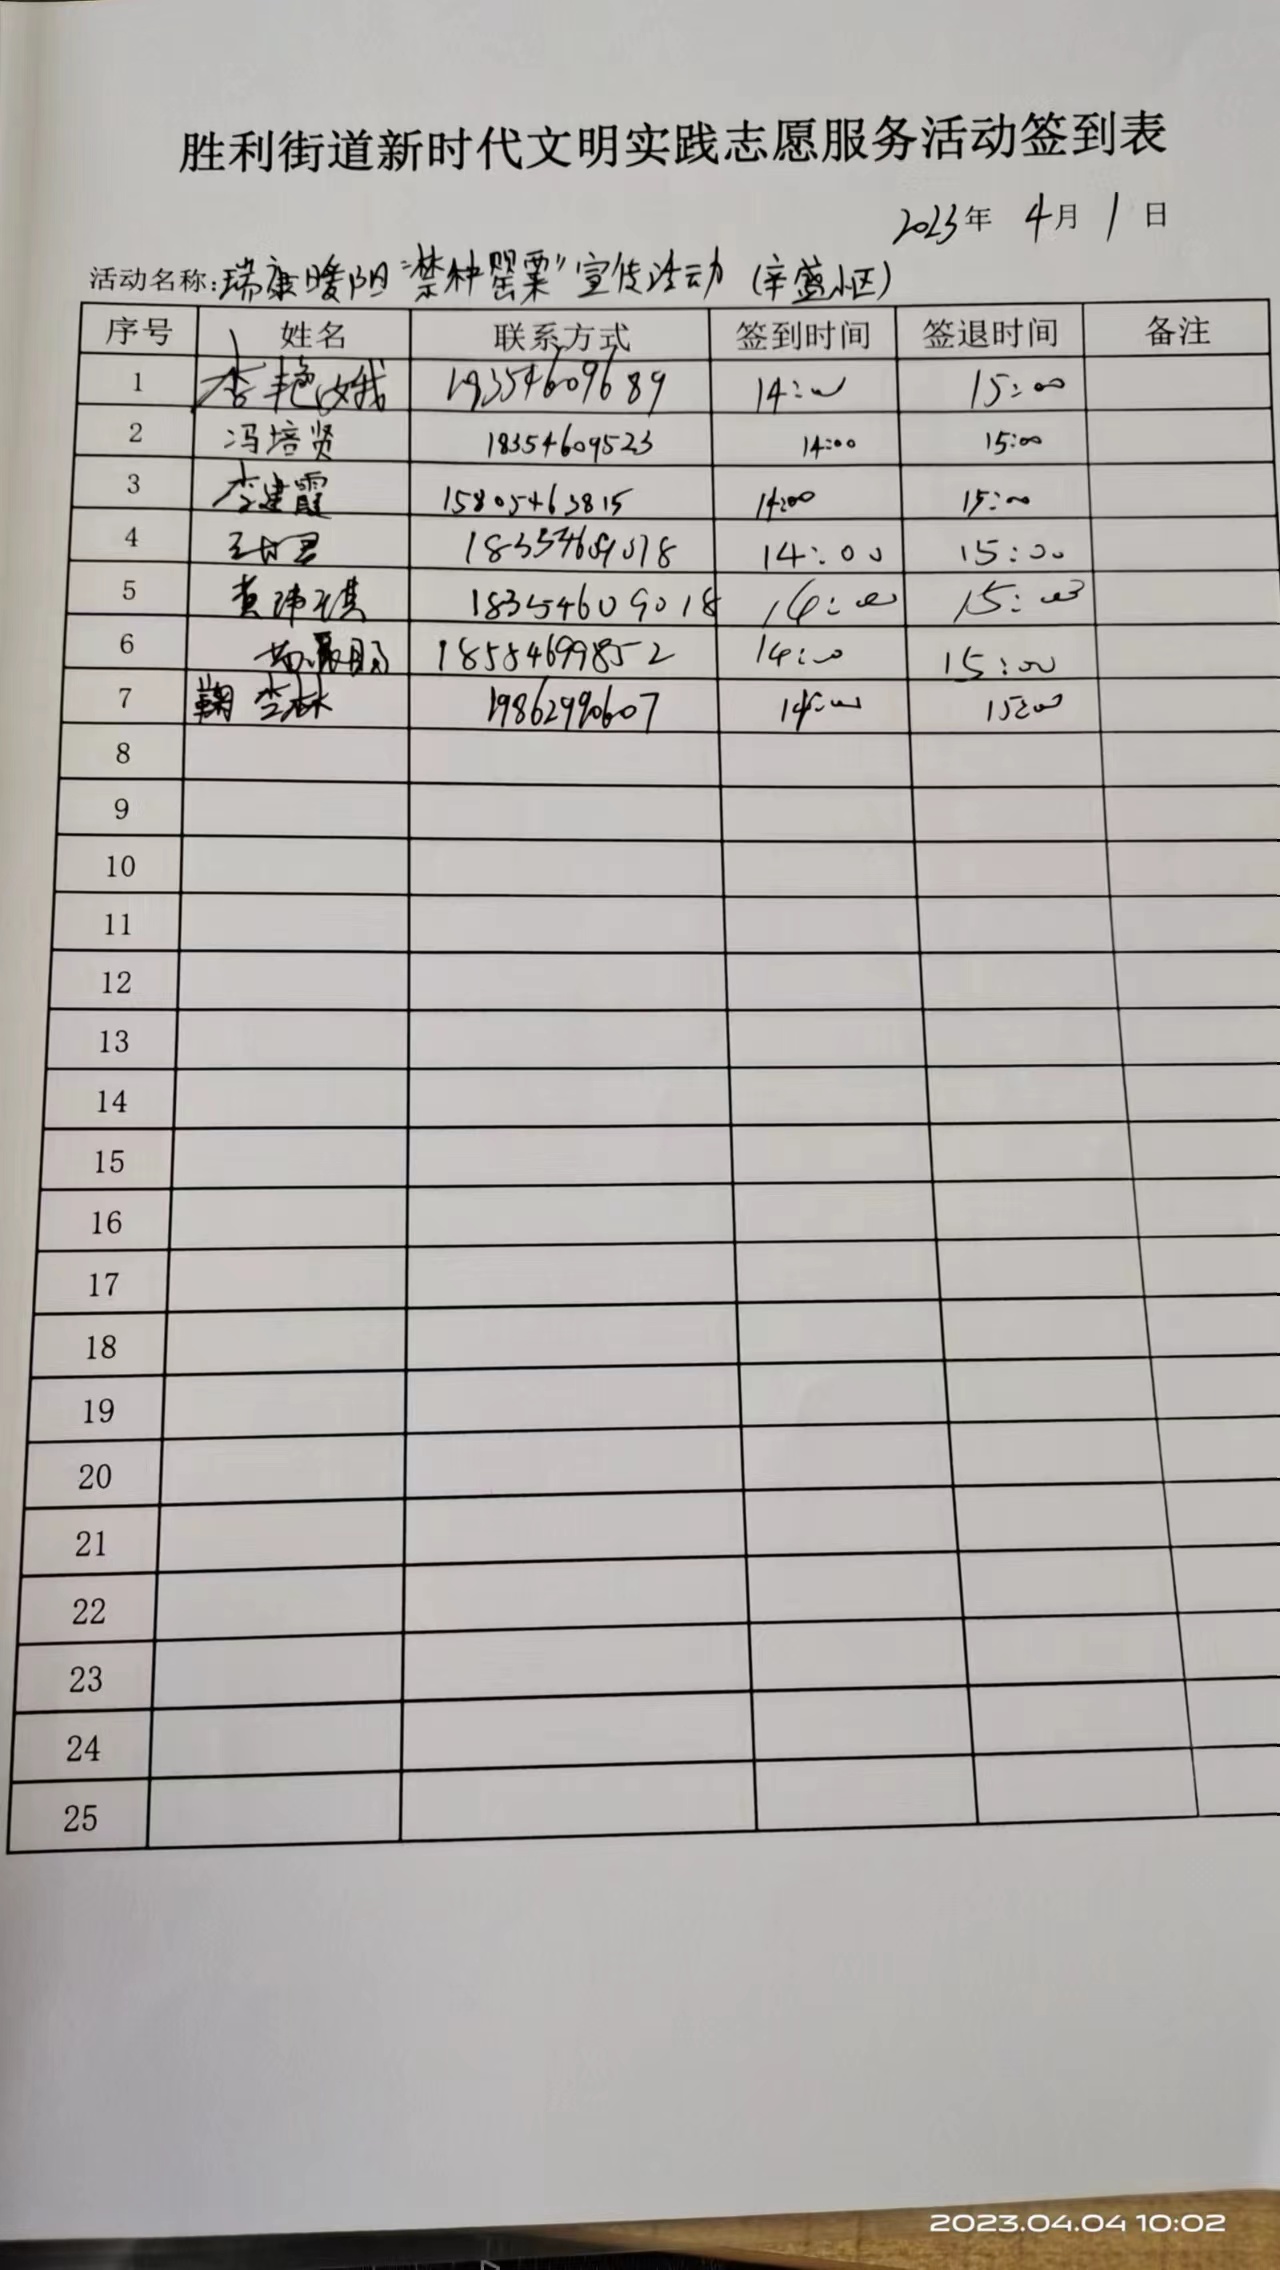 胜利街道新时代文明实践志愿服务活动签到表
2023年 4月 1日
活动名称:瑞康暖阳“禁种罂粟”宣传活动 (辛盛小区)
序号 姓名 联系方式 签到时间 签退时间 备注
1 李艳娥 19354609689 14:00 15:00
2 冯培贤 18354609523 14:00 15:00
3 李建霞 15805463815 14:00 15:00
4 14:00 15:00
5 18354609018 14:00 15:00
6 18584699852 14:00 15:00
7 鞠李林 19862990607 14:00 15:00
8
9
10
11
12
13
14
15
16
17
18
19
20
21
22
23
24
25
2023.04.04 10:02